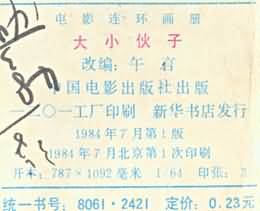 电影连环画册
大小伙子
改编：午言
中国电影出版社出版
一二〇一工厂印刷 新华书店发行
1984年7月第1版
1984年7月北京第1次印刷
开本：787×1092毫米 1/64 印张：
统一书号：8061·2421 定价：0.23元